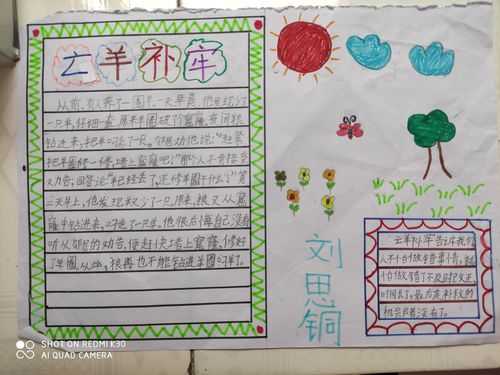 云羊补牢
从前,有人养了一圈羊.一天早晨,他发现少了
一只羊,仔细一查,原来羊圈破了个窟窿,夜间狼
钻进来,把羊叼走了一只。邻居劝他说:"赶紧
把羊圈修一修,堵上窟窿吧!"那个人不肯接受
劝告,回答说:"羊已经丢了,还修羊圈干什么?"第
二天早上,他发现羊又少了一只,原来,狼又从窟
窿中钻进来,叼走了一只羊,他很后悔自己没有
听从邻居的劝告,便赶快堵上窟窿,修好
了羊圈,从此,狼再也不能钻进羊圈叼羊了。
刘思铜
云羊补牢告诉我们
人不怕做错事情,就
怕做错了不及时改正,
时间长了,最后连补救的
机会都没有了。
SHOT ON REDMI K30
AI QUAD CAMERA